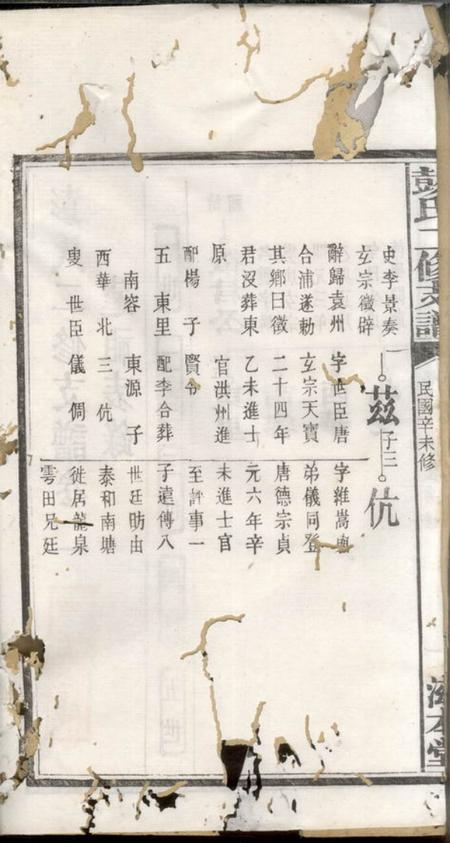 彭氏二修支譜
民國辛未修
滋本堂
史李景奏
玄宗徵辟
辭歸袁州
合浦遂勅
其鄉曰徵
君沒葬東
原
配楊 子
五 東里
南容
西華 北
叟 世臣
茲 子三
字世臣唐
玄宗天寶
二十四年
乙未進士
官洪州進
賢令
配李合葬
東源 子
三 伉
儀 倜
伉
字維嵩與
弟儀同登
唐德宗貞
元六年辛
未進士官
至評事一
子遠傳八
世廷昉由
泰和南塘
徙居龍泉
雲田兄廷